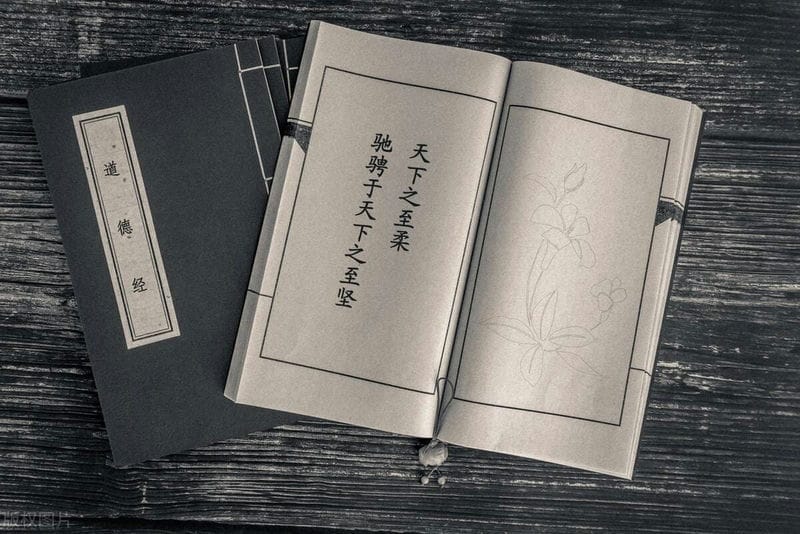 道德经
天下之至柔
驰骋于天下之至坚
版权图片